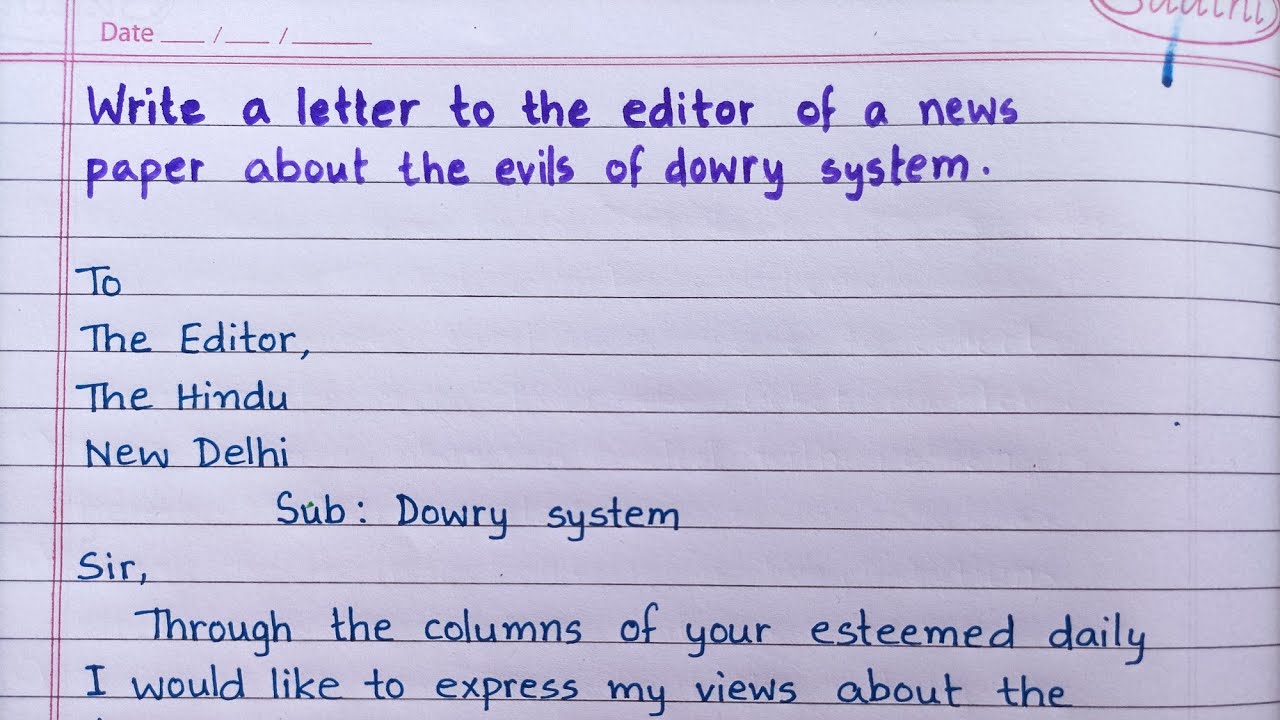 Date ___ / ___ / ______
Write a letter to the editor of a news
paper about the evils of dowry system.
To
The Editor,
The Hindu
New Delhi
Sub: Dowry system
Sir,
Through the columns of your esteemed daily
I would like to express my views about the